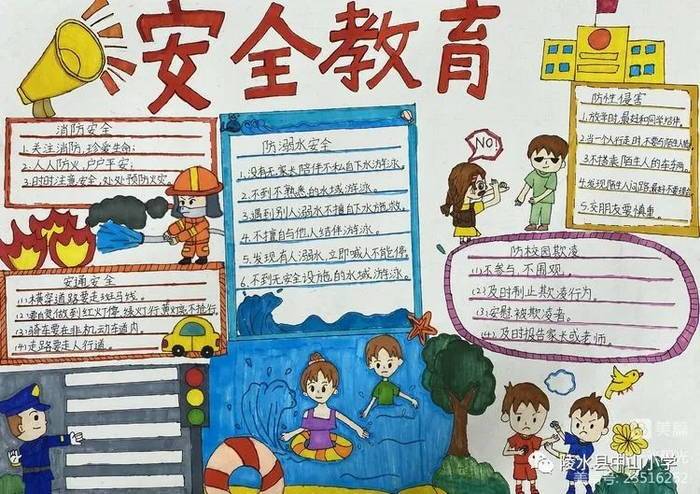 安全教育
消防安全
1.关注消防,珍爱生命;
2.人人防火,户户平安;
3.时时注意安全,处处预防火灾
防溺水安全
1.没有家长陪伴不私自下水游泳。
2.不到不熟悉的水域游泳。
3.遇到别人溺水不擅自下水施救。
4.不擅自与他人结伴游泳。
5.发现有人溺水,立即喊人不能停。
6.不到无安全设施的水域游泳。
防性侵害
1.放学时,最好和同学结伴。
2.当一个人行走时,不要与陌生人
3.不搭乘陌生人的车
4.发现陌生人问路,最好不要
5.交朋友要慎重。
NO!
交通安全
(1)横穿道路要走斑马线。
(2)要自觉做到红灯停 绿灯行 黄灯
(3)骑车要在非机动车道内。
(4)走路要走人行道。
防校园欺凌
(1)不参与,不围观。
(2)及时制止欺凌行为。
(3)安慰被欺凌者。
(4)及时报告家长或老师。
美篇
陵水县中山小学
美篇号:23516262